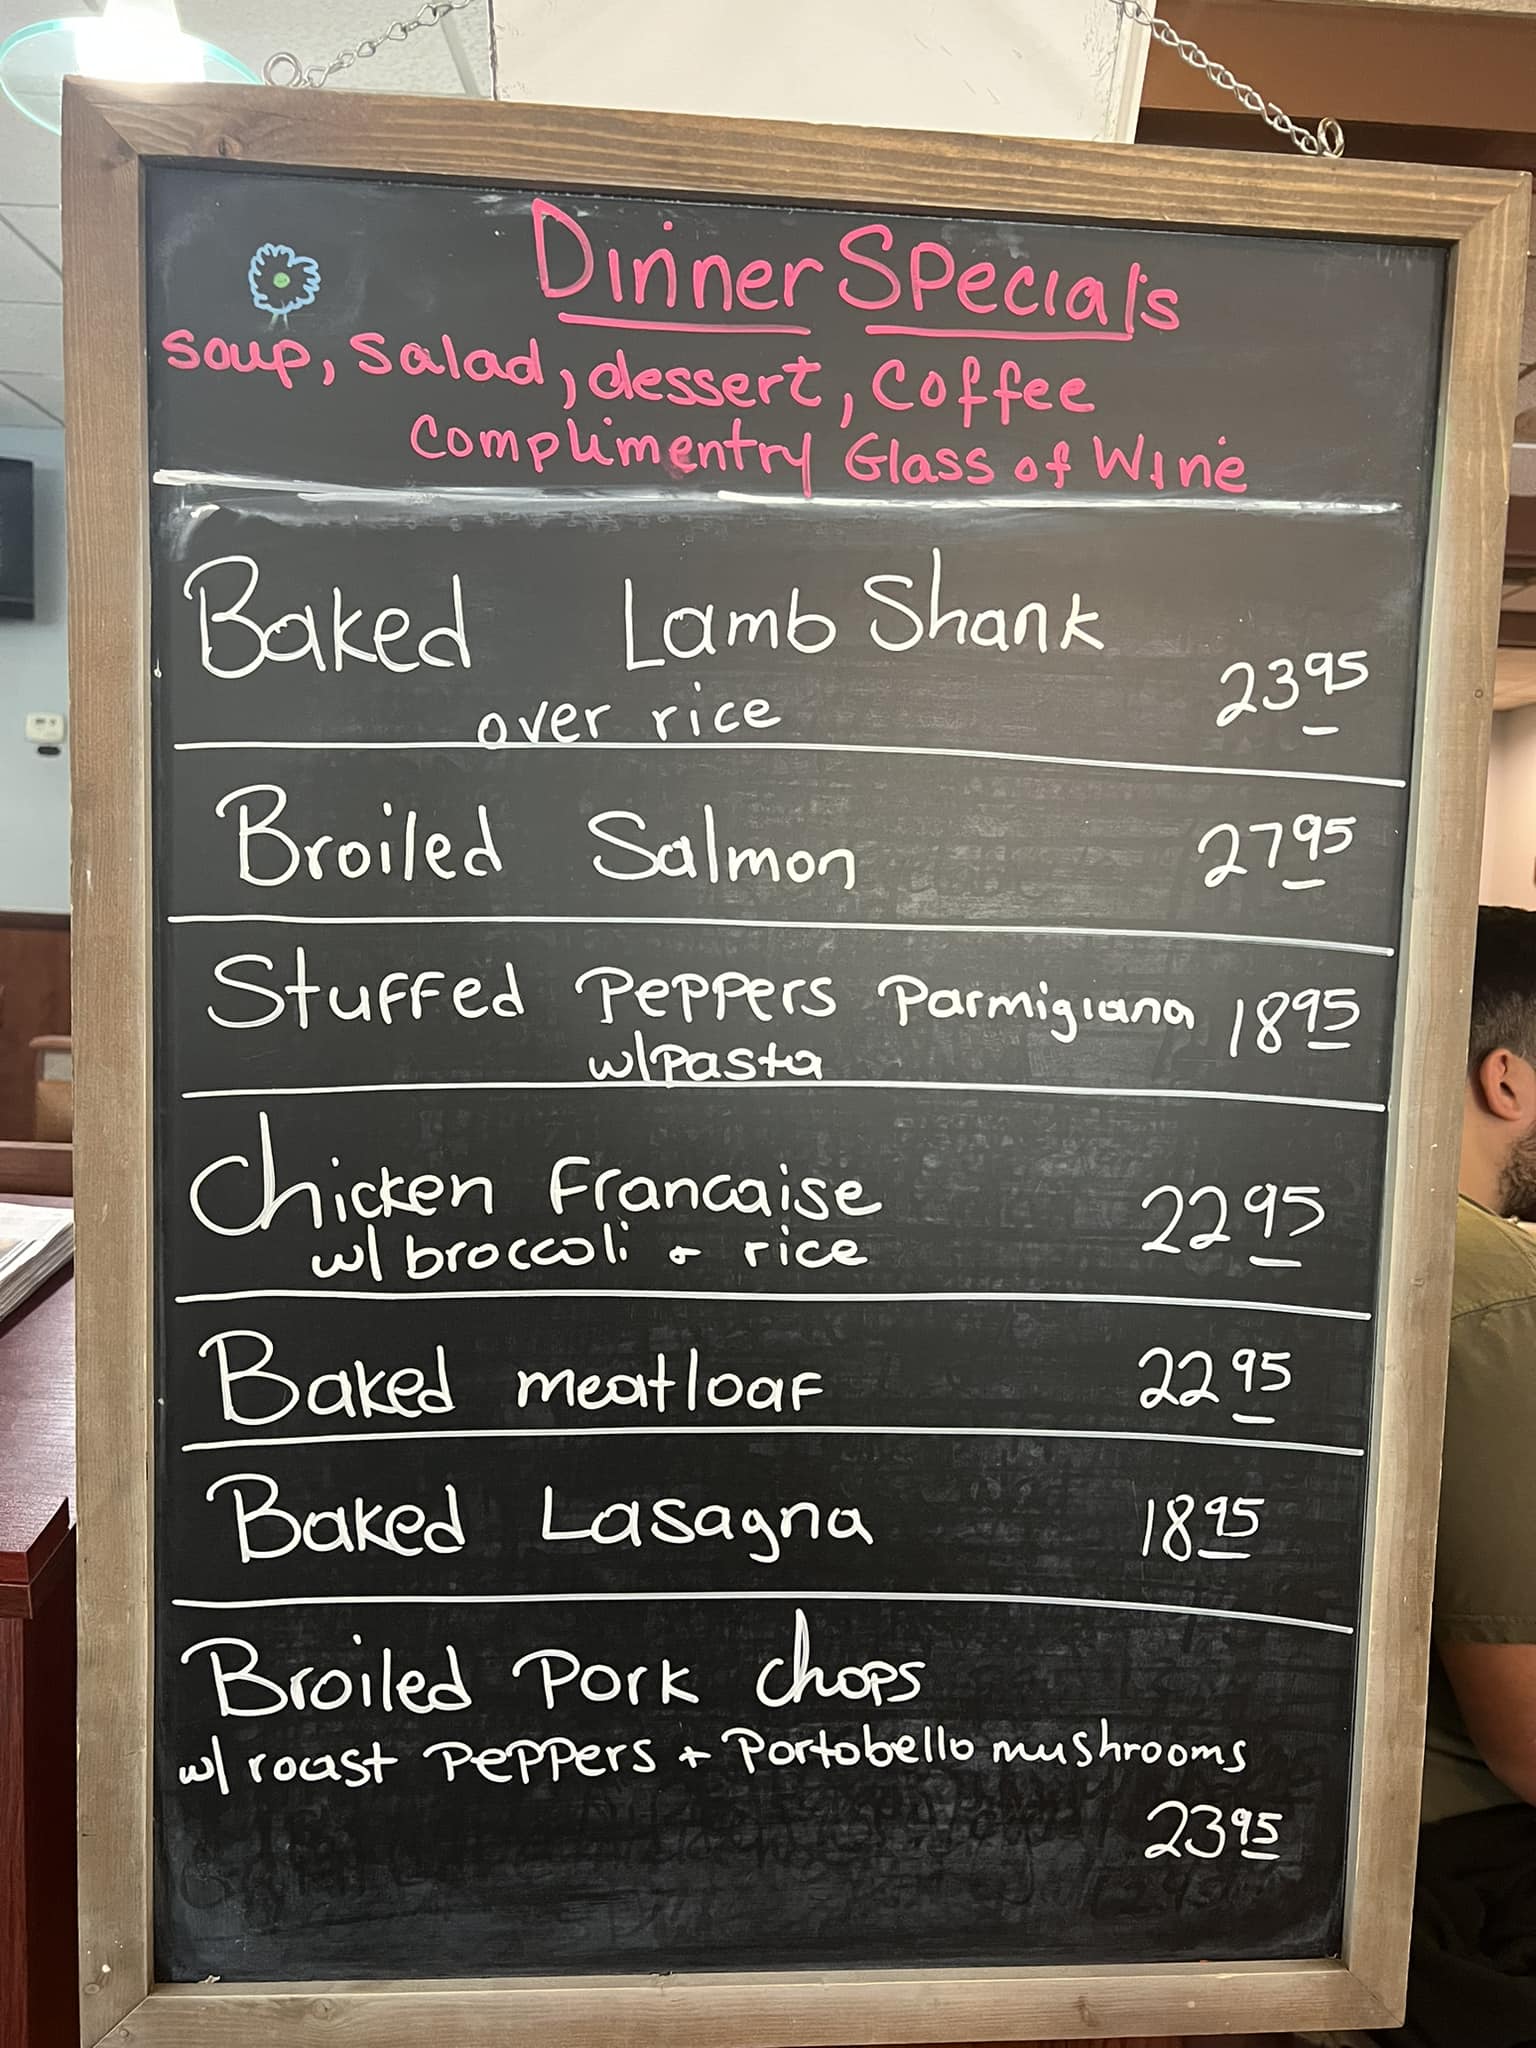 Dinner Specials
Soup, Salad, dessert, Coffee
Complimentry Glass of Wine
Baked Lamb Shank
over rice 23 95
Broiled Salmon 27 95
Stuffed Peppers Parmigiana 18 95
w/pasta
Chicken Francaise 22 95
w/ broccoli + rice
Baked meatloaf 22 95
Baked Lasagna 18 95
Broiled Pork chops
w/ roast Peppers + Portobello mushrooms
23 95